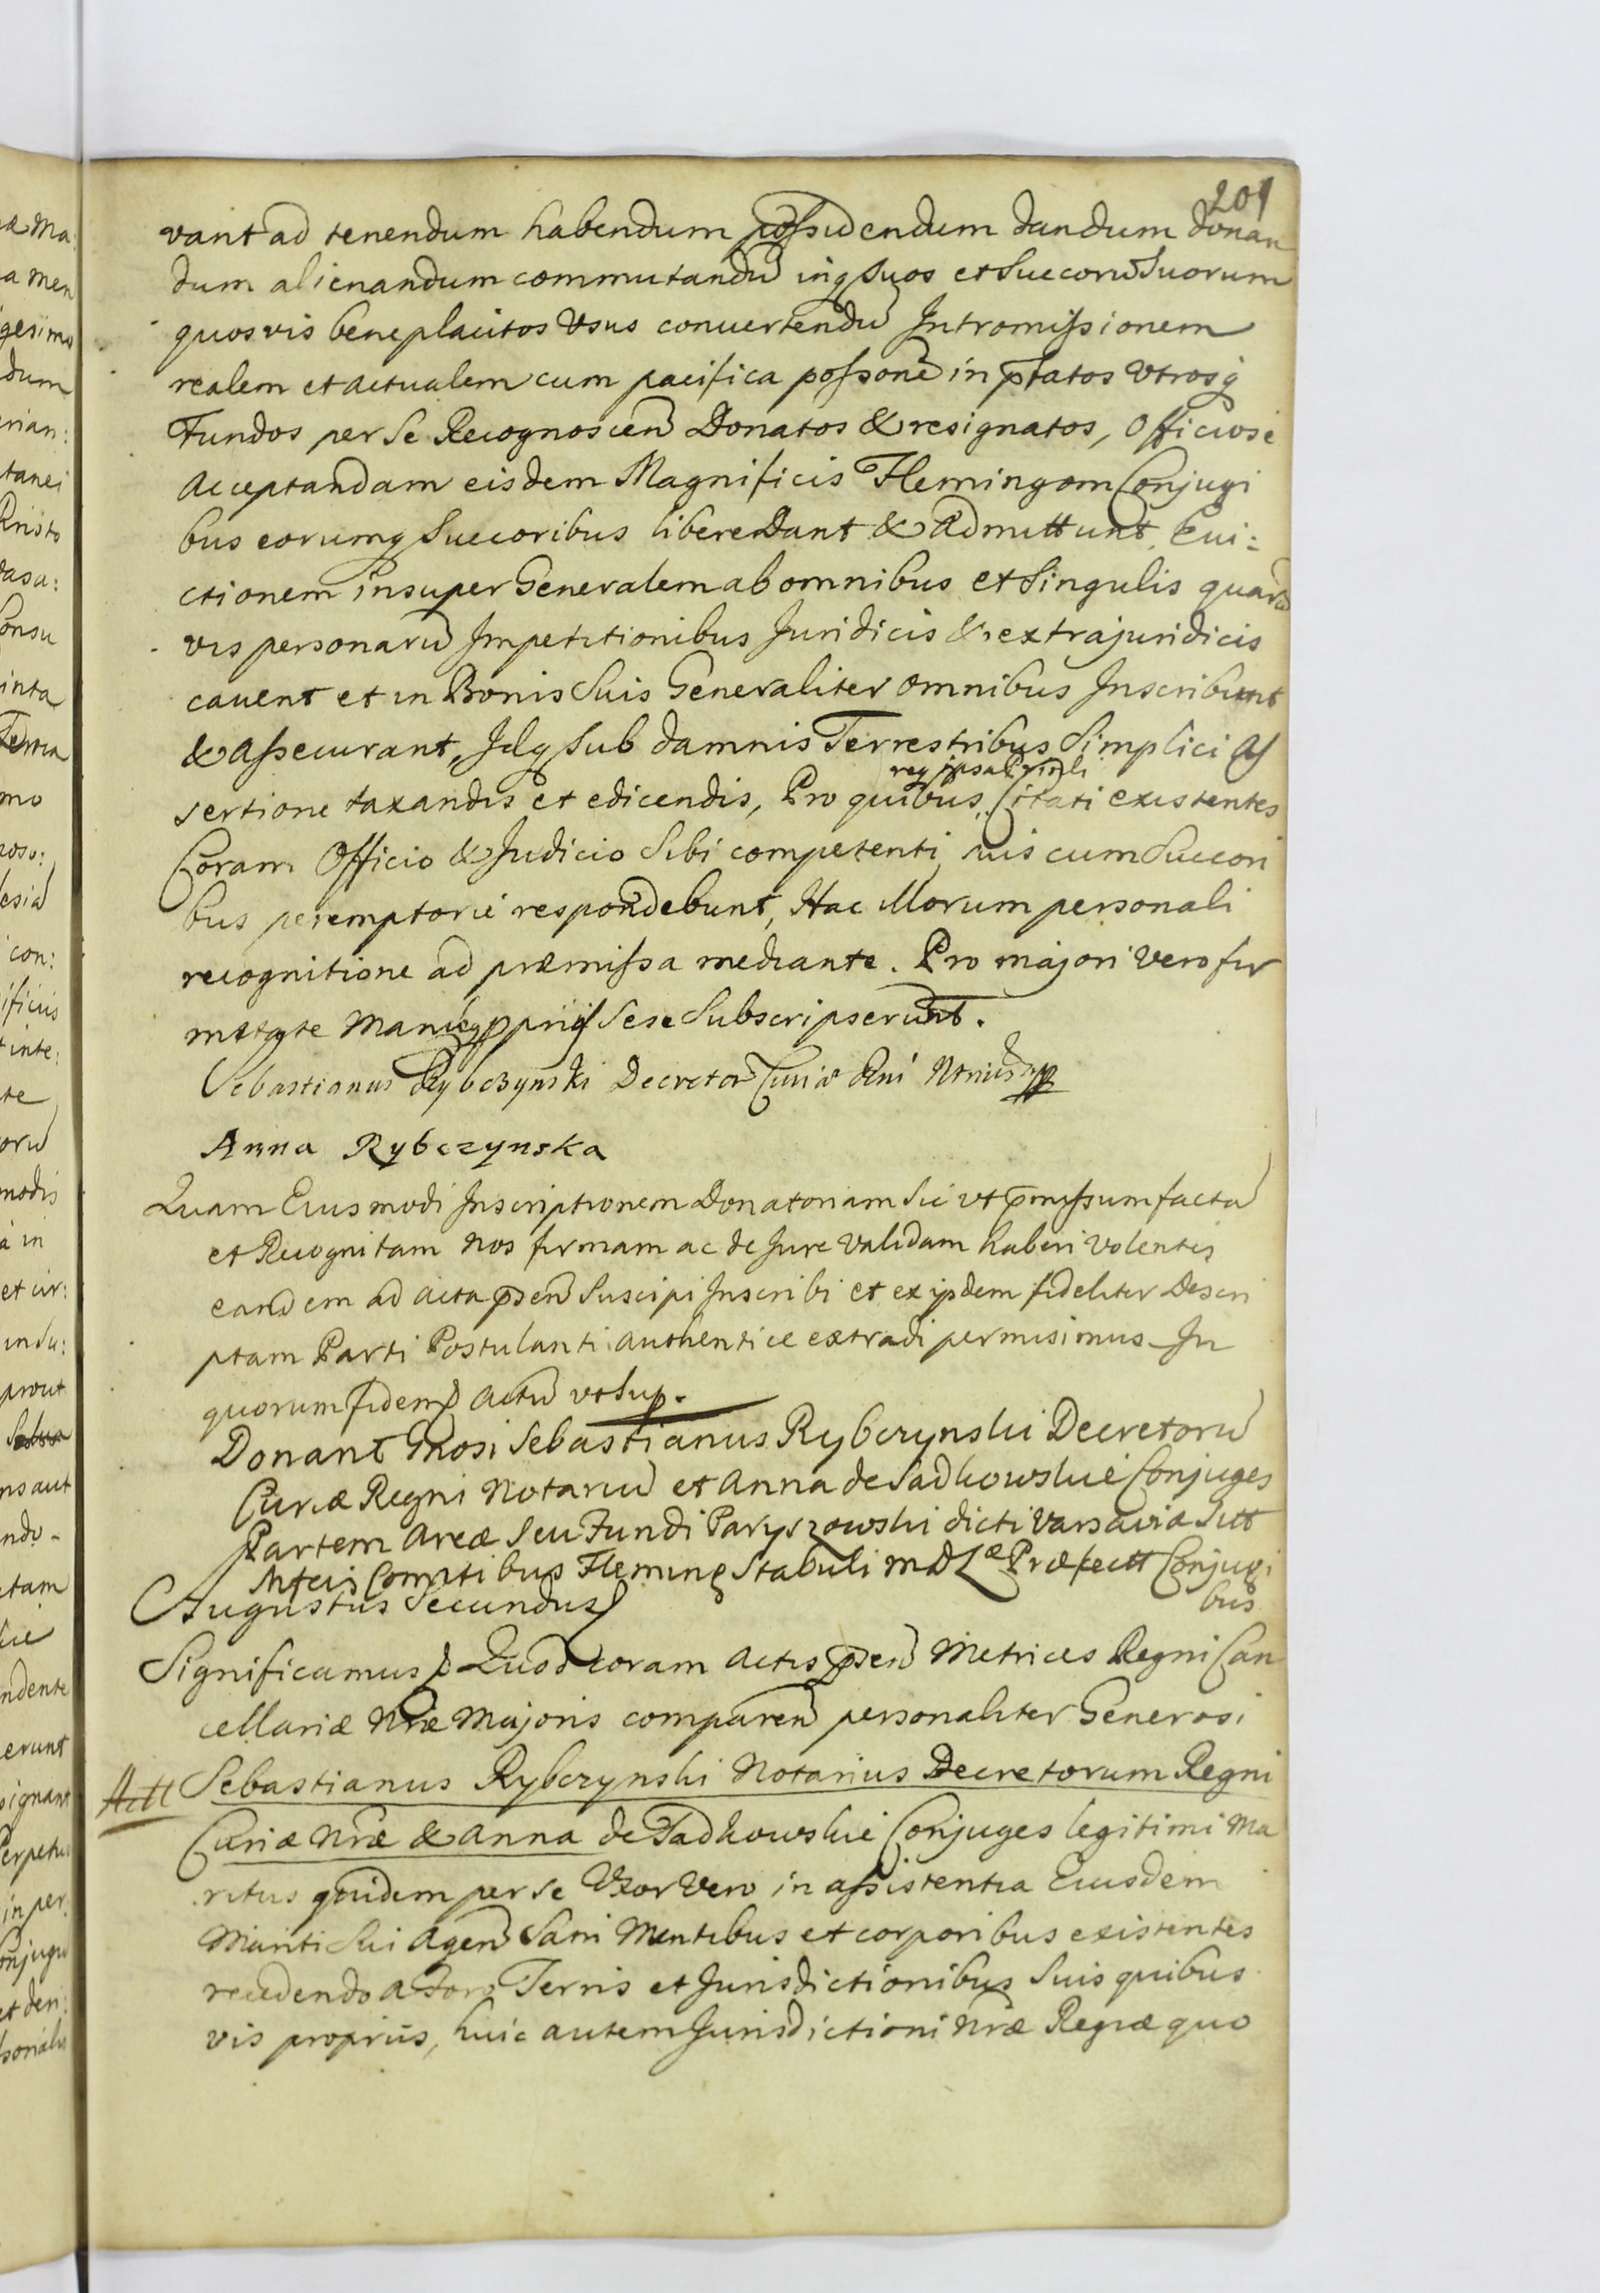 201
vant ad tenendum habendum possidendum dandum donan
dum alienandum commutandū inq suos et Succorū Suorum
quosvis beneplacitos Vsus convertendū Intromissionem
realem et actualem cum pacifica possonē in ptatos Vtrosq
Fundos per se Recognoscen Donatos & resignatos, Officiose
Acceptandam eisdem Magnificis Flemingom Conjugi
bus eorumq Succoribus libere Dant & Admittunt, Evi:
ctionem insuper Generalem ab omnibus et Singulis quarū
vis personarū Impetitionibus Juridicis & extrajuridicis
cavent et in Bonis Suis Generaliter omnibus Inscribunt
& Assecurant, Idq Sub damnis Terrestribus Simplici As
sertione taxandis et edicendis, Pro quibus, Citati existentes
Coram Officio & Judicio Sibi competenti, suis cum Succori
bus peremptorie respondebunt, Hac Illorum personali
recognitione ad præmissa mediante. Pro majori vero fir
mitate Manibq ppriis Sese Subscripserunt.
Sebastianus Rybczynski Decretor Curiæ Rni Ntrius mpp
Anna Rybczynska
Quam Eiusmodi Inscriptionem Donatoriam Sic vt pmissum facta
et Recognitam Nos firmam ac de Jure validam haberi volentes
eandem ad acta psen Suscipi Inscribi et ex ijsdem fideliter Descri
ptam Parti Postulanti authentice extradi permisimus In
quorum fidem Actū vt Sup.
Donant Gnosi Sebastianus Rybczynski Decretorū
Curiæ Regni Notariū et Anna de Sadkowskie Conjuges
Partem Areæ Seu Fundi Paryszowski dicti Varsaviæ Sitt
Mfcis Comitibus Fleming Stabuli M D L æ Præfectt Conjugi
bus
Augustus Secundus
Significamus Quod coram Actis psen Metrices Regni Can
cellariæ Nræ Majoris comparen personaliter Generosi
Actt Sebastianus Rybczynski Notarius Decretorum Regni
Curiæ Nræ & Anna de Sadkowskie Conjuges legitimi Ma
ritus quidem per se Vxor Vero in assistentia Eiusdem
Mariti Sui Agen Sani Mentibus et corporibus existentes
recedendo a Foro Terris et Jurisdictionibus Suis quibus
vis propriis, huic autem Jurisdictioni Nræ Regiæ quo